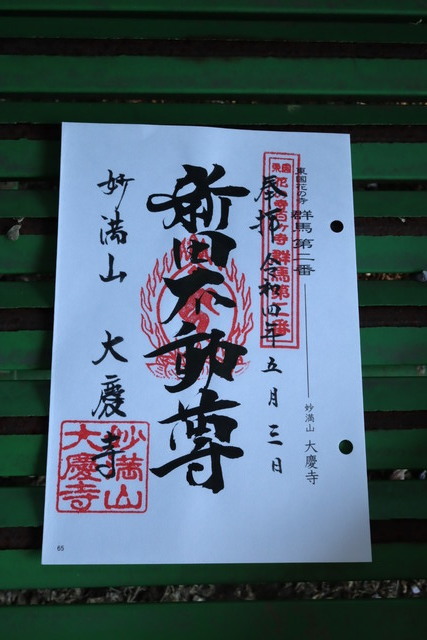 東国花の寺 群馬 第二番
妙満山 大慶寺
東国花の寺百ヶ寺 群馬第二番
奉拝 令和四年 五月三日
新田不動尊
妙満山 大慶寺
妙満山
大慶寺
65